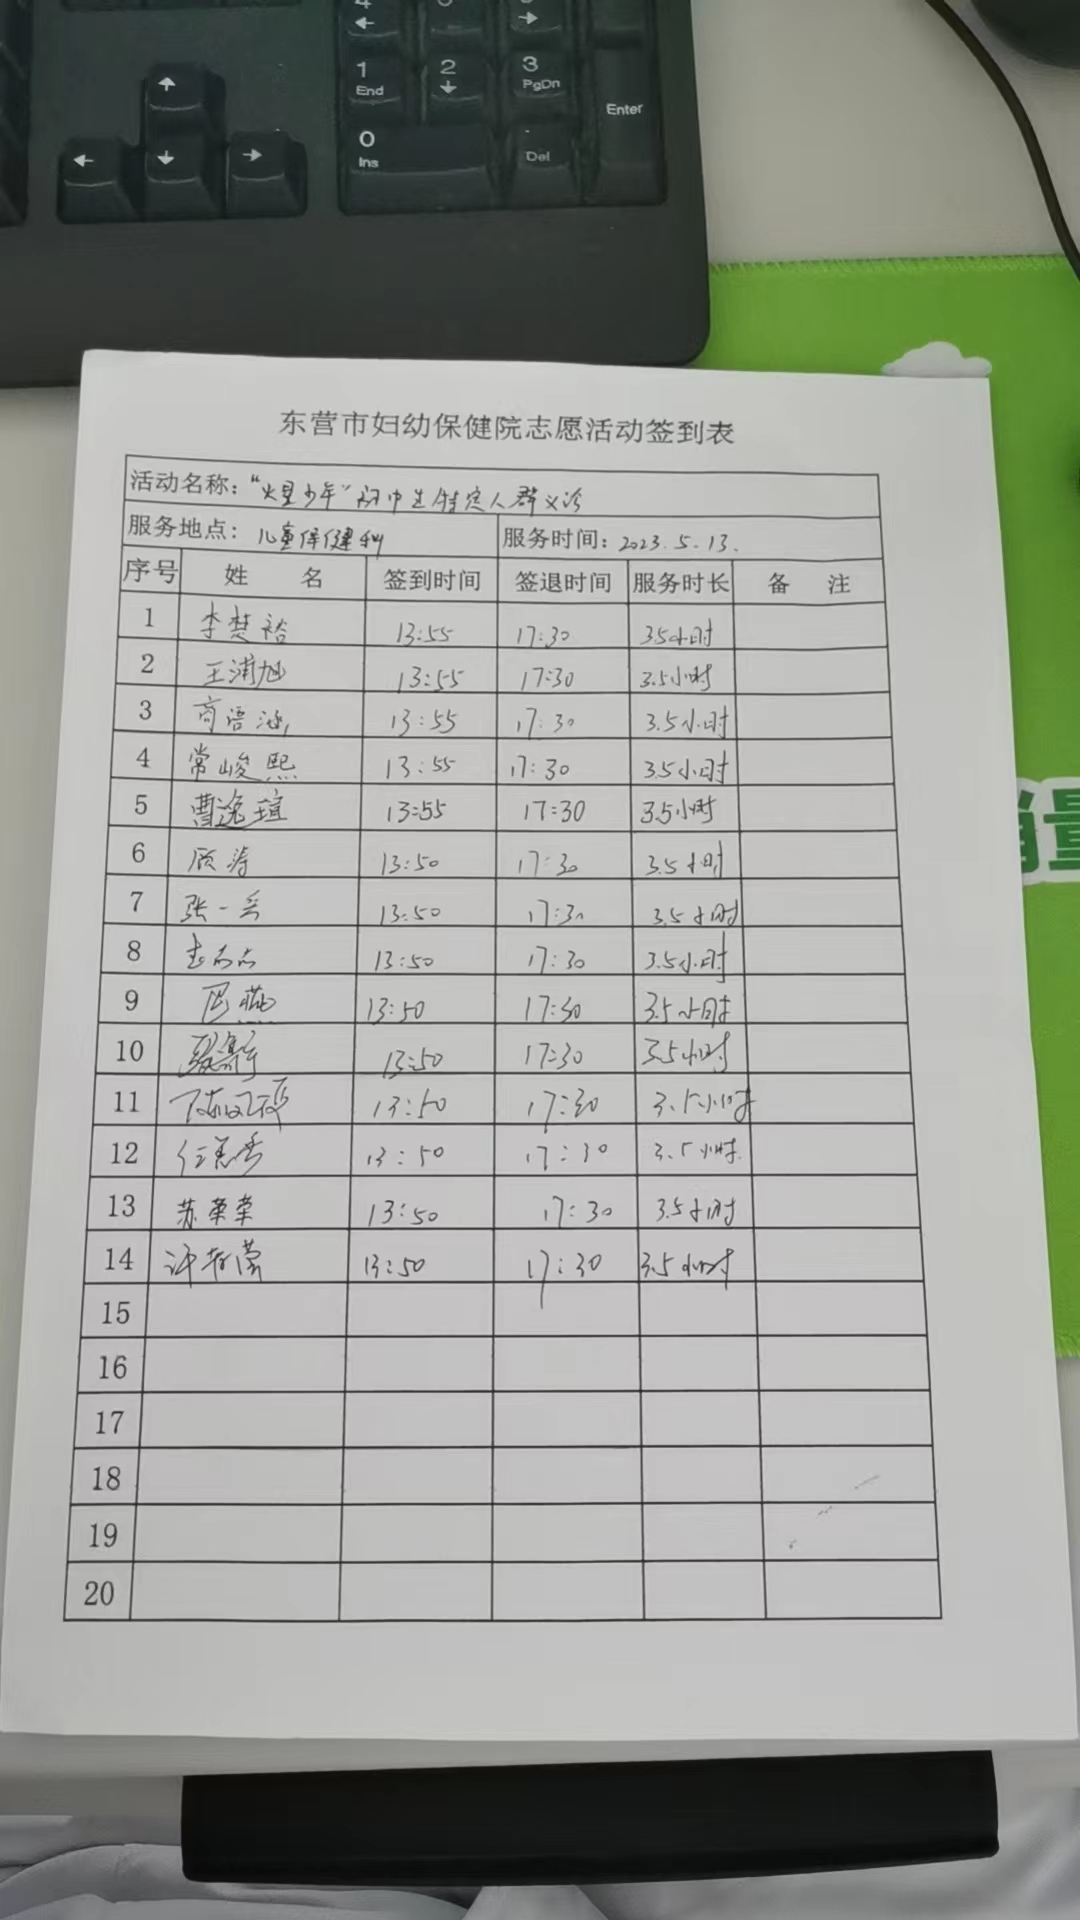 4
←
→
1
End
2
↓
3
PgDn
Enter
0
Ins
Del
↑
← ↓ →
东营市妇幼保健院志愿活动签到表
活动名称：“火星少年”初中生特定人群义诊
服务地点：儿童保健科 服务时间：2023.5.13.
序号 姓 名 签到时间 签退时间 服务时长 备 注
1 李楚裕 13:55 17:30 3.5小时
2 王浦旭 13:55 17:30 3.5小时
3 商语涵 13:55 17:30 3.5小时
4 常峻熙 13:55 17:30 3.5小时
5 曹逸瑄 13:55 17:30 3.5小时
6 顾涛 13:50 17:30 3.5小时
7 张一 13:50 17:30 3.5小时
8 13:50 17:30 3.5小时
9 周燕 13:50 17:30 3.5小时
10 13:50 17:30 3.5小时
11 13:50 17:30 3.5小时
12 任 13:50 17:30 3.5小时
13 苏荣荣 13:50 17:30 3.5小时
14 许 13:50 17:30 3.5小时
15
16
17
18
19
20
量